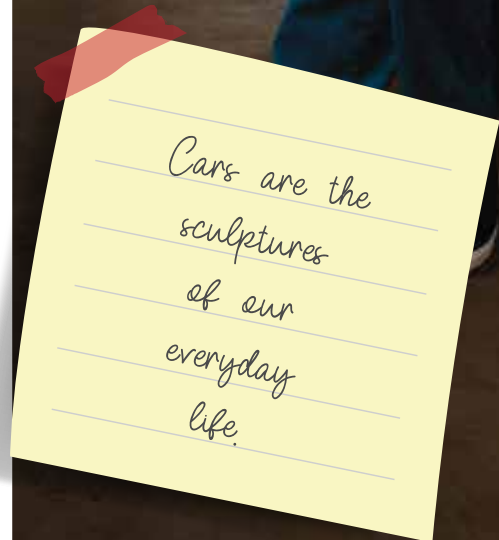 Cars are the
sculptures
of our
everyday
life.